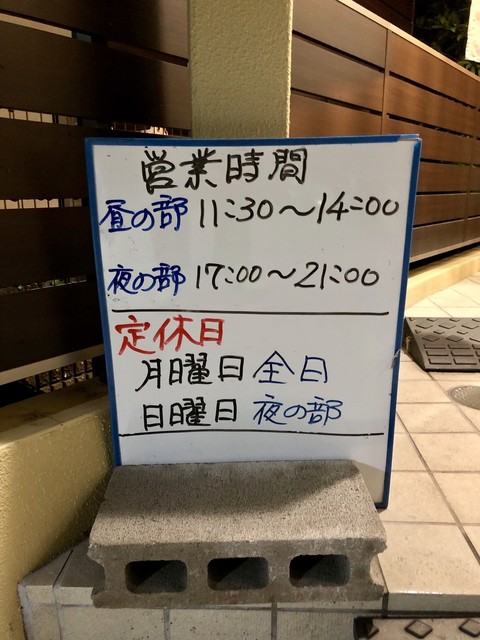 営業時間
昼の部 11:30〜14:00
夜の部 17:00〜21:00
定休日
月曜日 全日
日曜日 夜の部